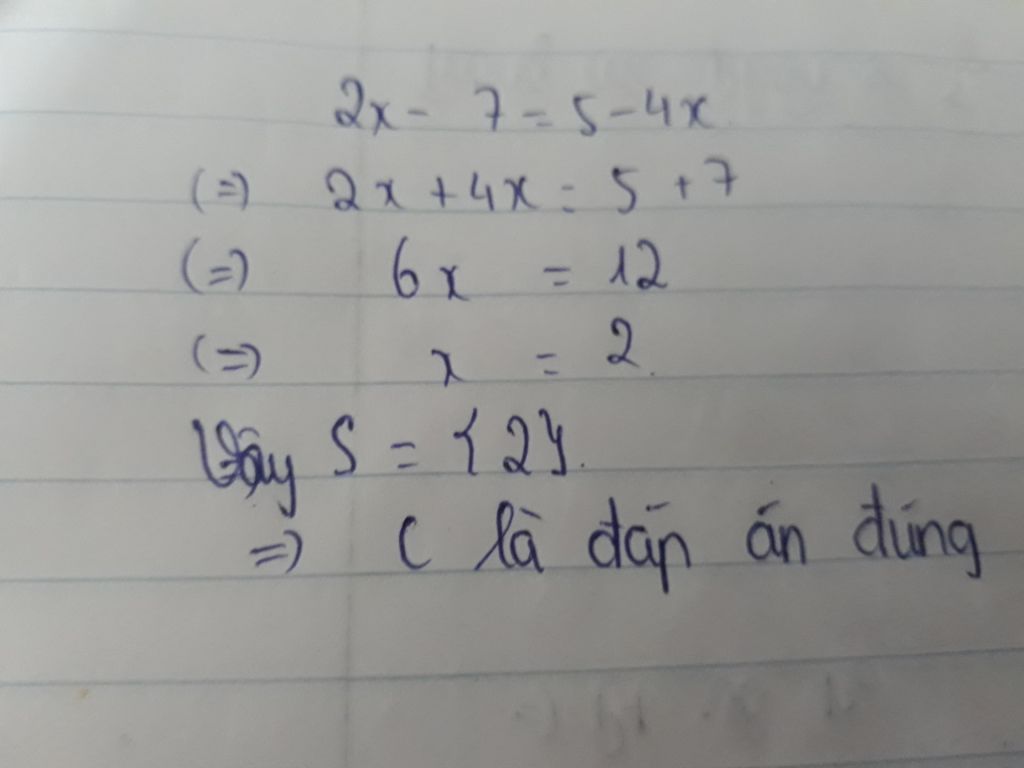 2x - 7 = 5 - 4x
(=) 2x + 4x = 5 + 7
(=) 6x = 12
(=) x = 2.
Vậy S = {2}.
=) C là đáp án đúng